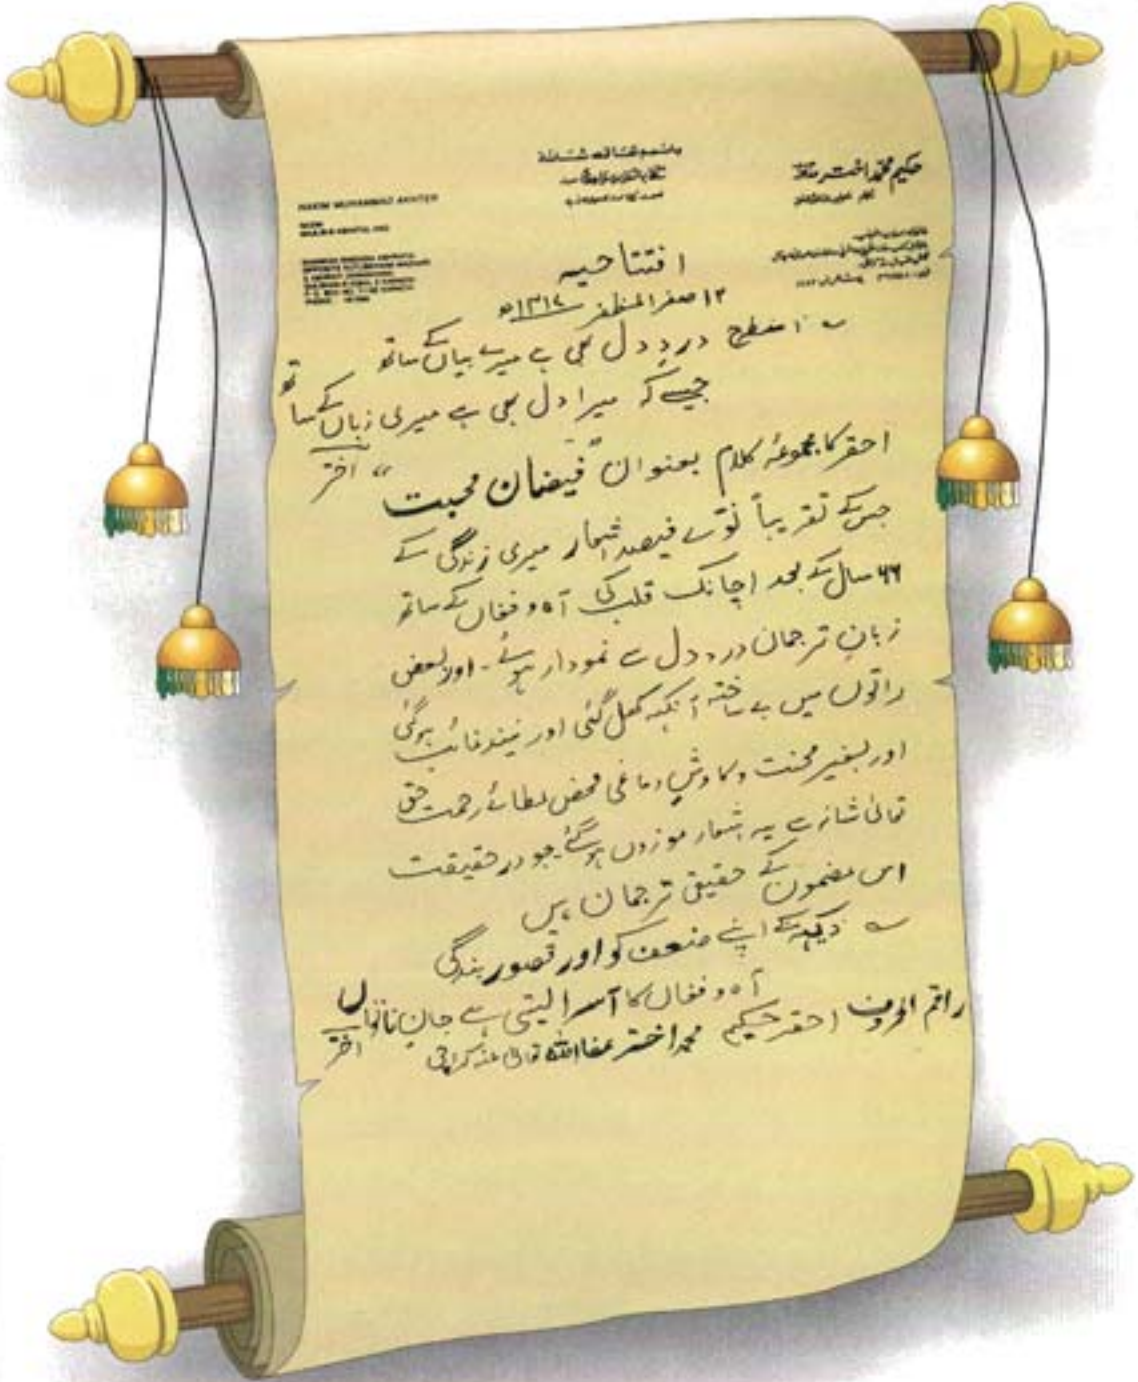 باسمہ تعالیٰ شانہ
حکیم محمد اختر
HAKIM MUHAMMAD AKHTER
افتتاحیہ
۱۲ صفر المظفر ۱۴۱۷ھ
اس طرح دردِ دل بھی ہے میرے بیاں کے ساتھ
جیسے کہ میرا دل بھی ہے میری زباں کے ساتھ
اختر
احقر کا مجموعۂ کلام بعنوان "فیضانِ محبت"
جس کے تقریباً نوّے فیصد اشعار میری زندگی کے
۶۶ سال کے بعد اچانک قلب کی آہ و فغاں کے ساتھ
زبانِ ترجمان دردِ دل سے نمودار ہوئے۔ اور بعض
راتوں میں بے ساختہ آنکھ کھل گئی اور نیند غائب ہوگئی
اور بغیر محنت و کاوشِ دماغی محض عطائے رحمت حق
تعالیٰ شانہ سے یہ اشعار موزوں ہوگئے۔ جو در حقیقت
اس مضمون کے حقیقی ترجمان ہیں
دیکھ کے اپنے ضعف کو اور قصورِ بندگی
آہ و فغاں کا آسرا لیتی ہے جانِ ناتواں
اختر
راقم الحروف احقر حکیم محمد اختر عفا اللہ تعالیٰ عنہ کراچی